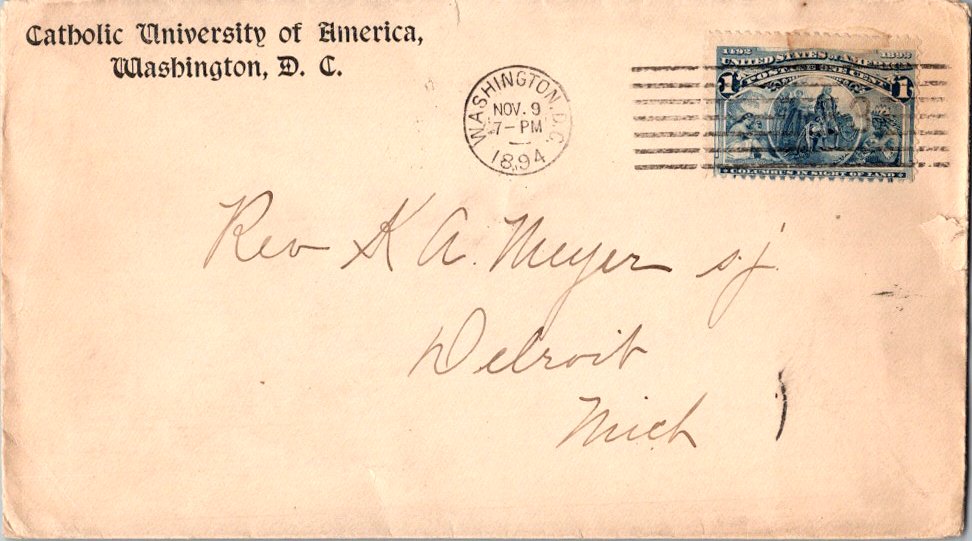 Catholic University of America,
Washington, D. C.
WASHINGTON, D.C.
NOV. 9
7-PM
1894
1492 1892
UNITED STATES OF AMERICA
POSTAGE ONE CENT
1 1
COLUMBUS IN SIGHT OF LAND
Rev K A. Meyer s.j.
Detroit
Mich